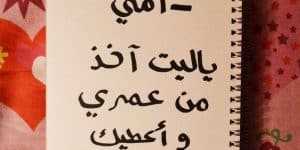 _ أمي
ياليت آخذ
من عمري
و أعطيك